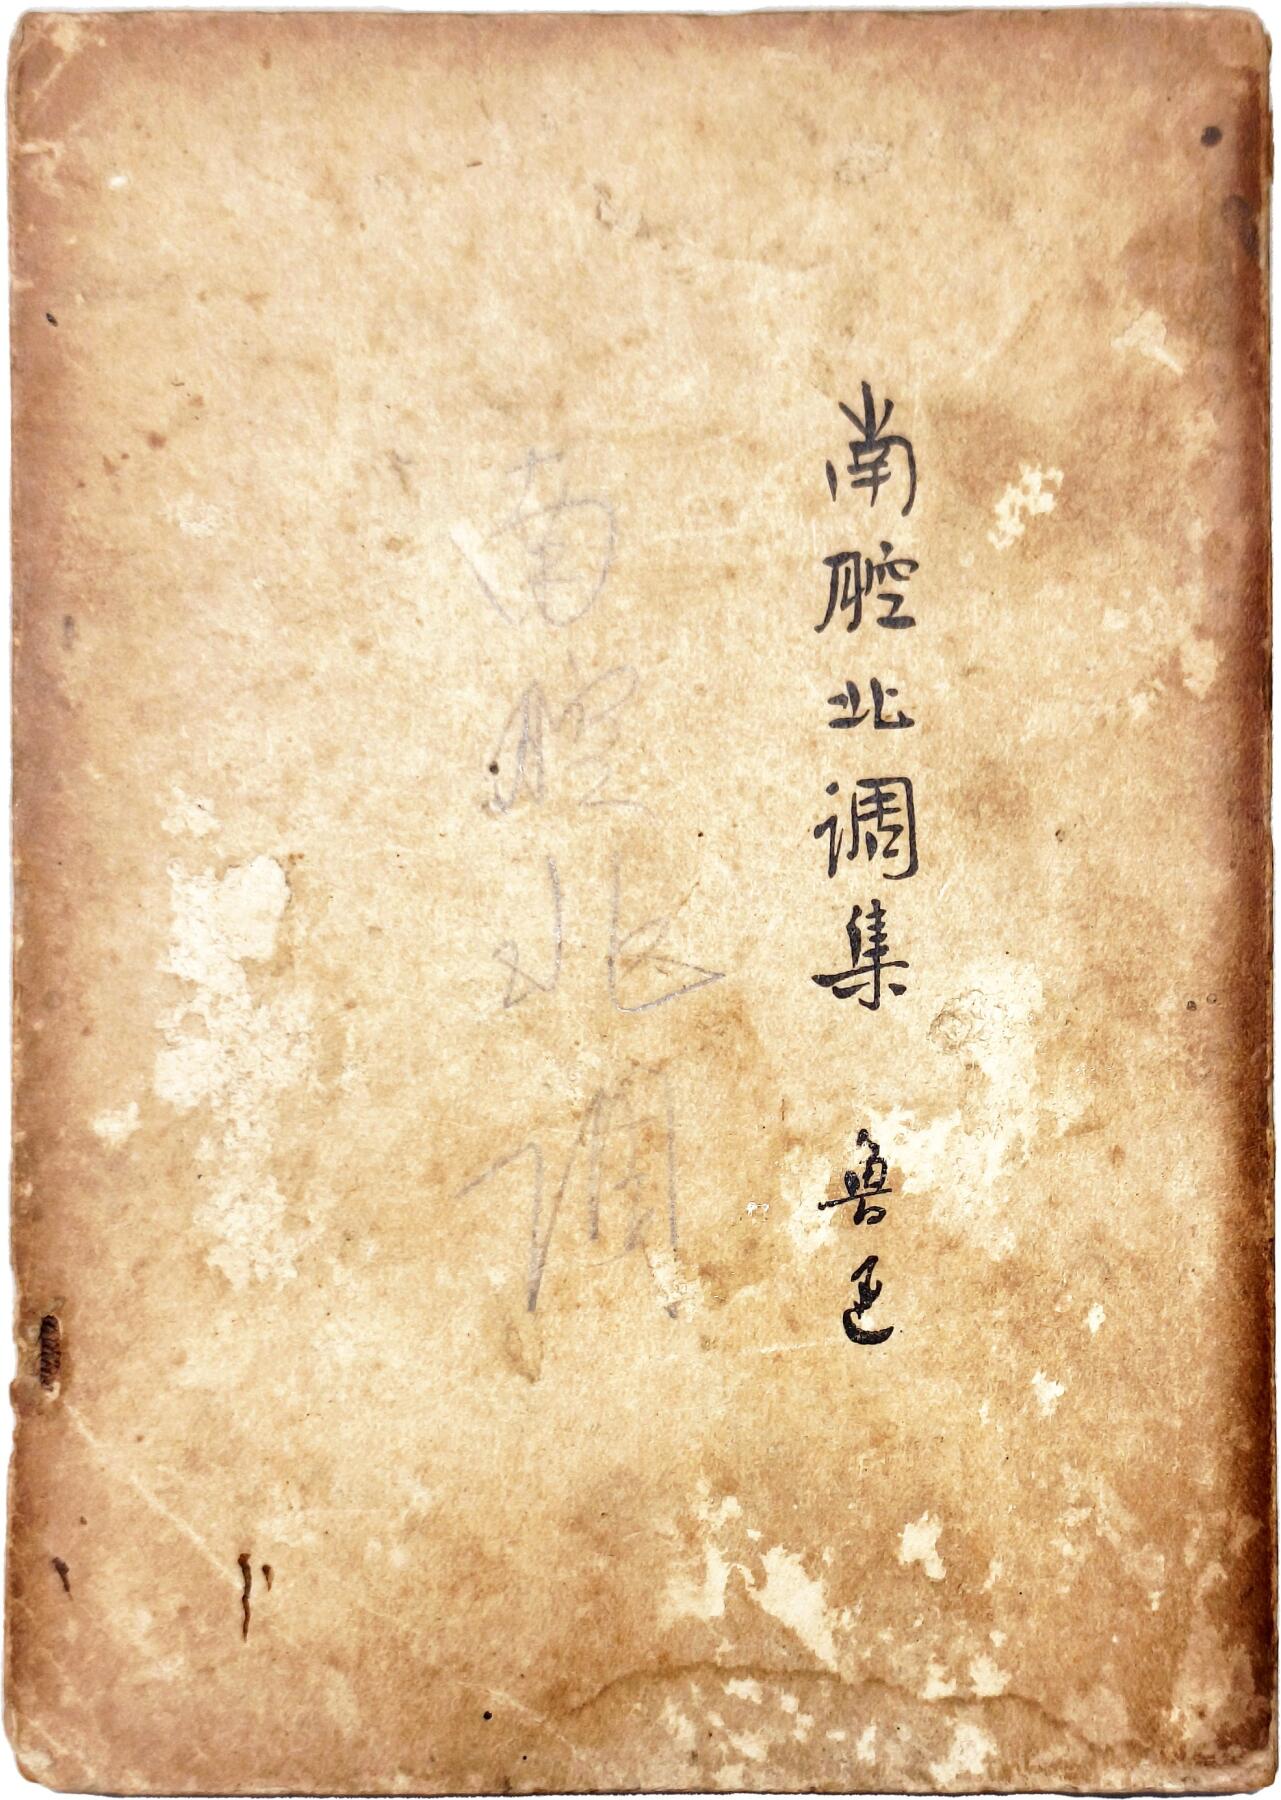 南腔北调集 鲁迅
南腔北调